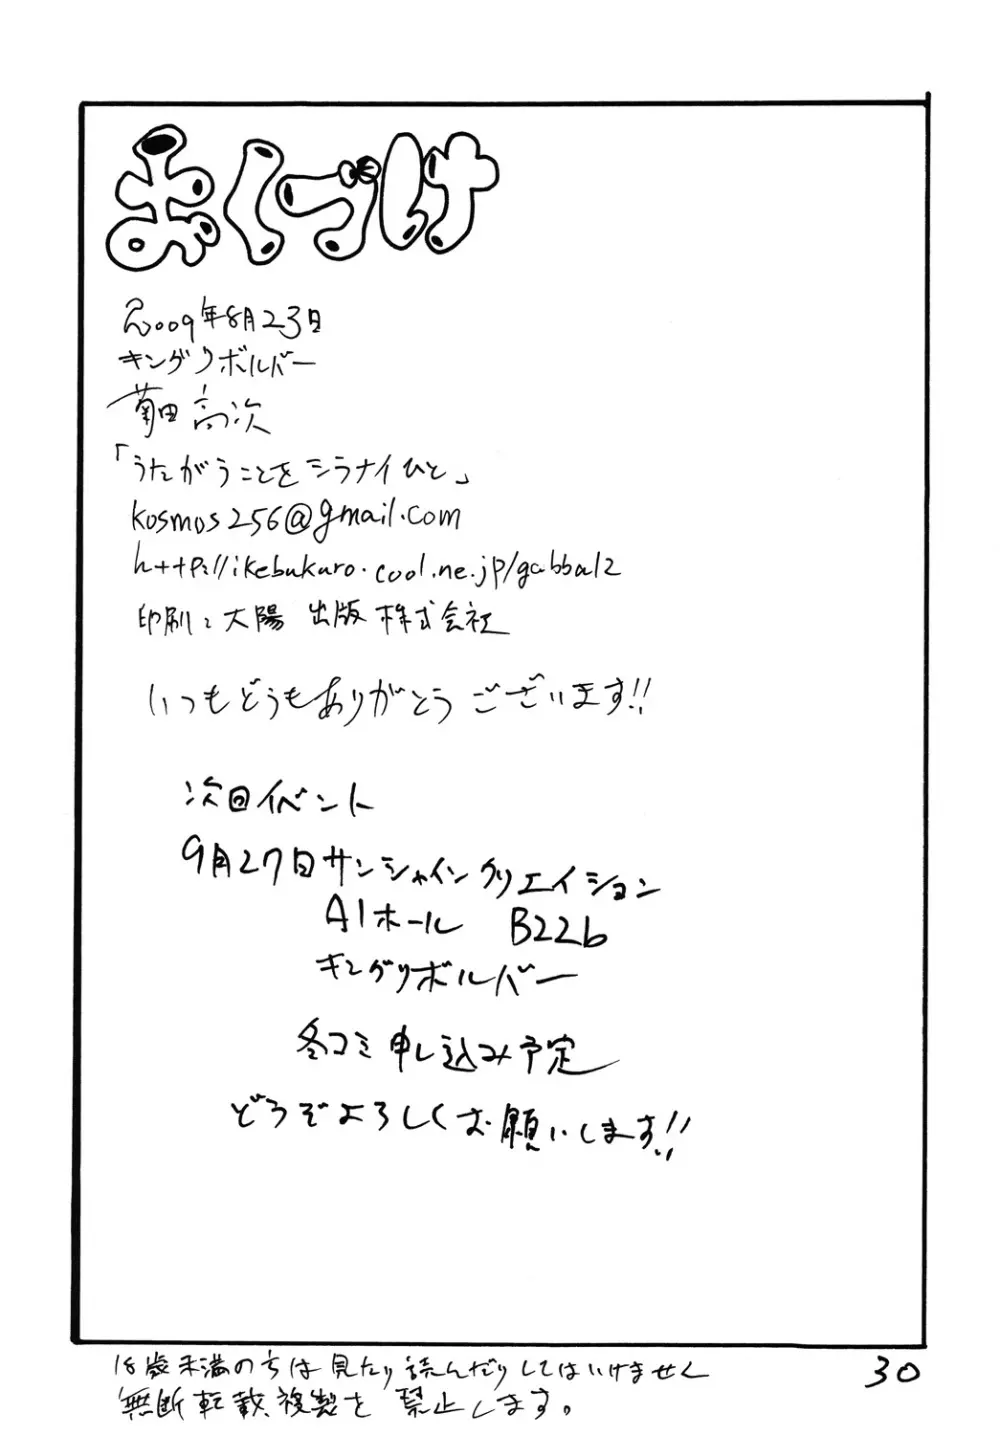 おくづけ
2009年8月23日
キングリボルバー
菊田高次
「うたがうことをシラナイひと」
kosmos256@gmail.com
http://ikebukuro.cool.ne.jp/gabba12
印刷:大陽出版株式会社
いつもどうもありがとうございます!!
次回イベント
9月27日サンシャインクリエイション
A1ホール B22b
キングリボルバー
冬コミ申し込み予定
どうぞよろしくお願いします!!
18歳未満の方は見たり読んだりしてはいけません
無断転載、複製を禁止します。
30